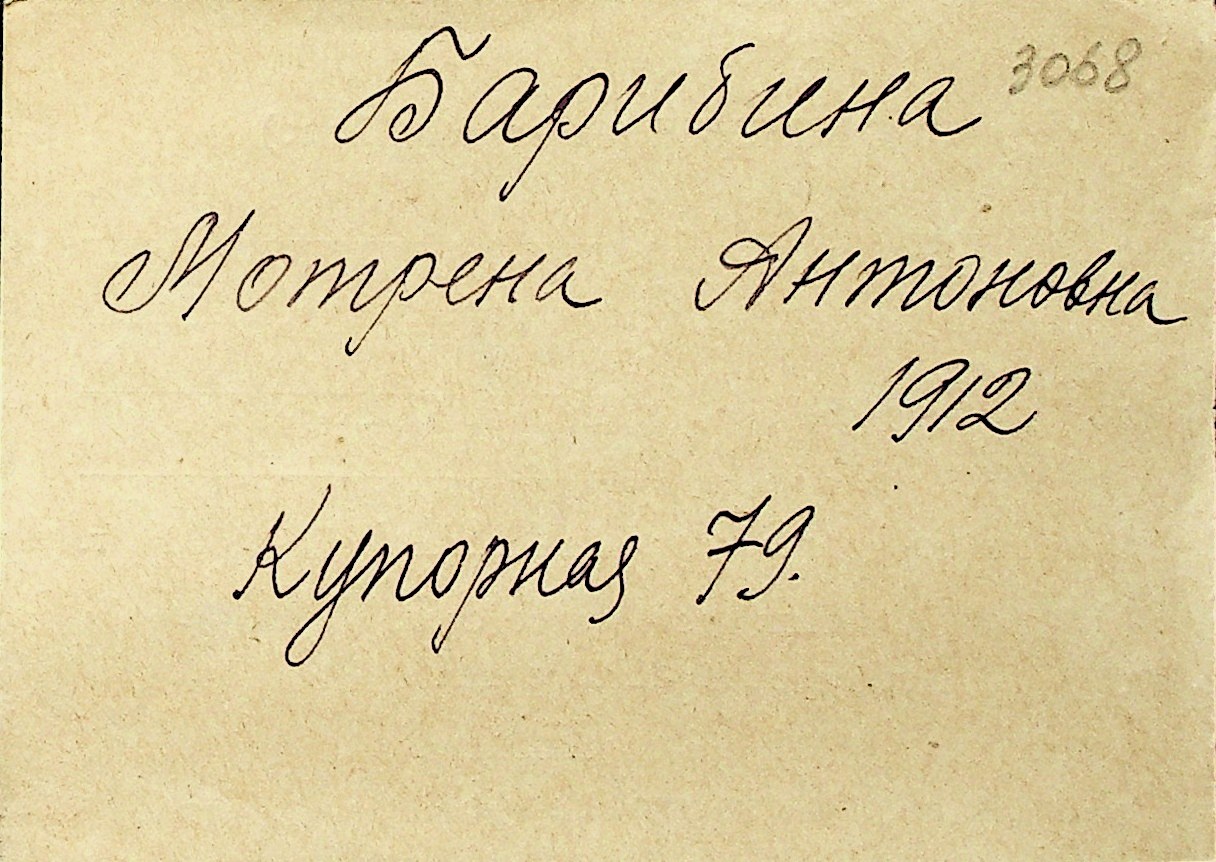 Барибина 3068
Мотрена Антоновна
1912
Купорная 79.